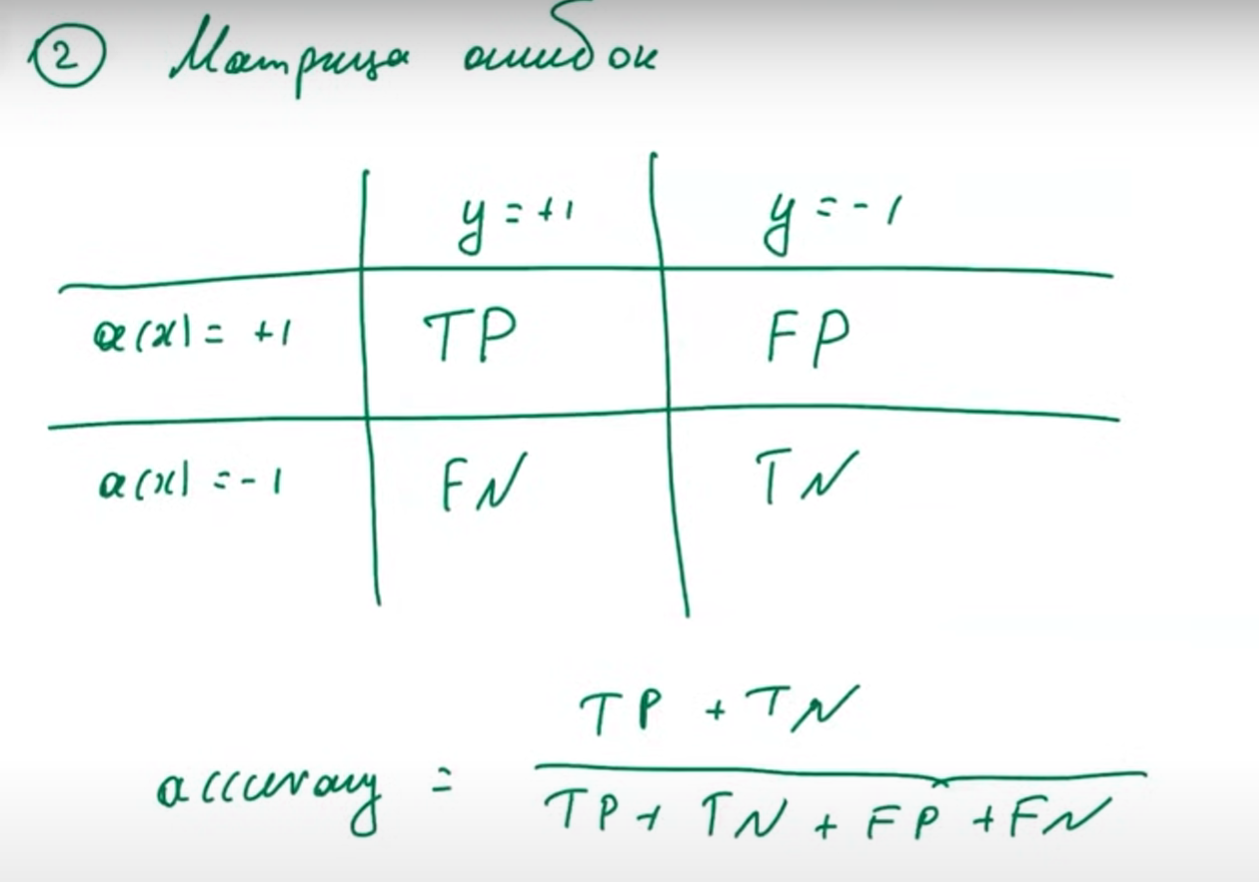 2 Матрица ошибок
y = +1 y = -1
a(x) = +1 TP FP
a(x) = -1 FN TN
TP + TN
accuracy =
TP + TN + FP + FN